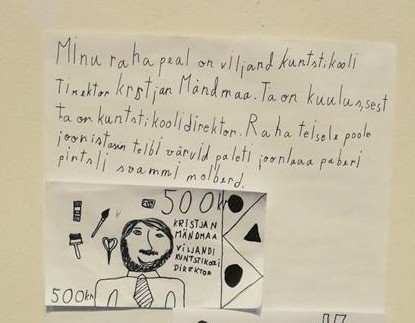 Minu raha peal on viljand kuntstikooli
Tirektor kristjan Mändmaa. Ta on kuulus, sest
ta on kuntstikoolidirektor. Raha teisele poole
joonistasin telbi värvid paleti joonlaaa paberi
pintsli svammi molberd.
500kr
KRISTJAN
MÄNDMAA
VILJANDI
KUNTSTIKOOLI
DIREKTOR
500kr